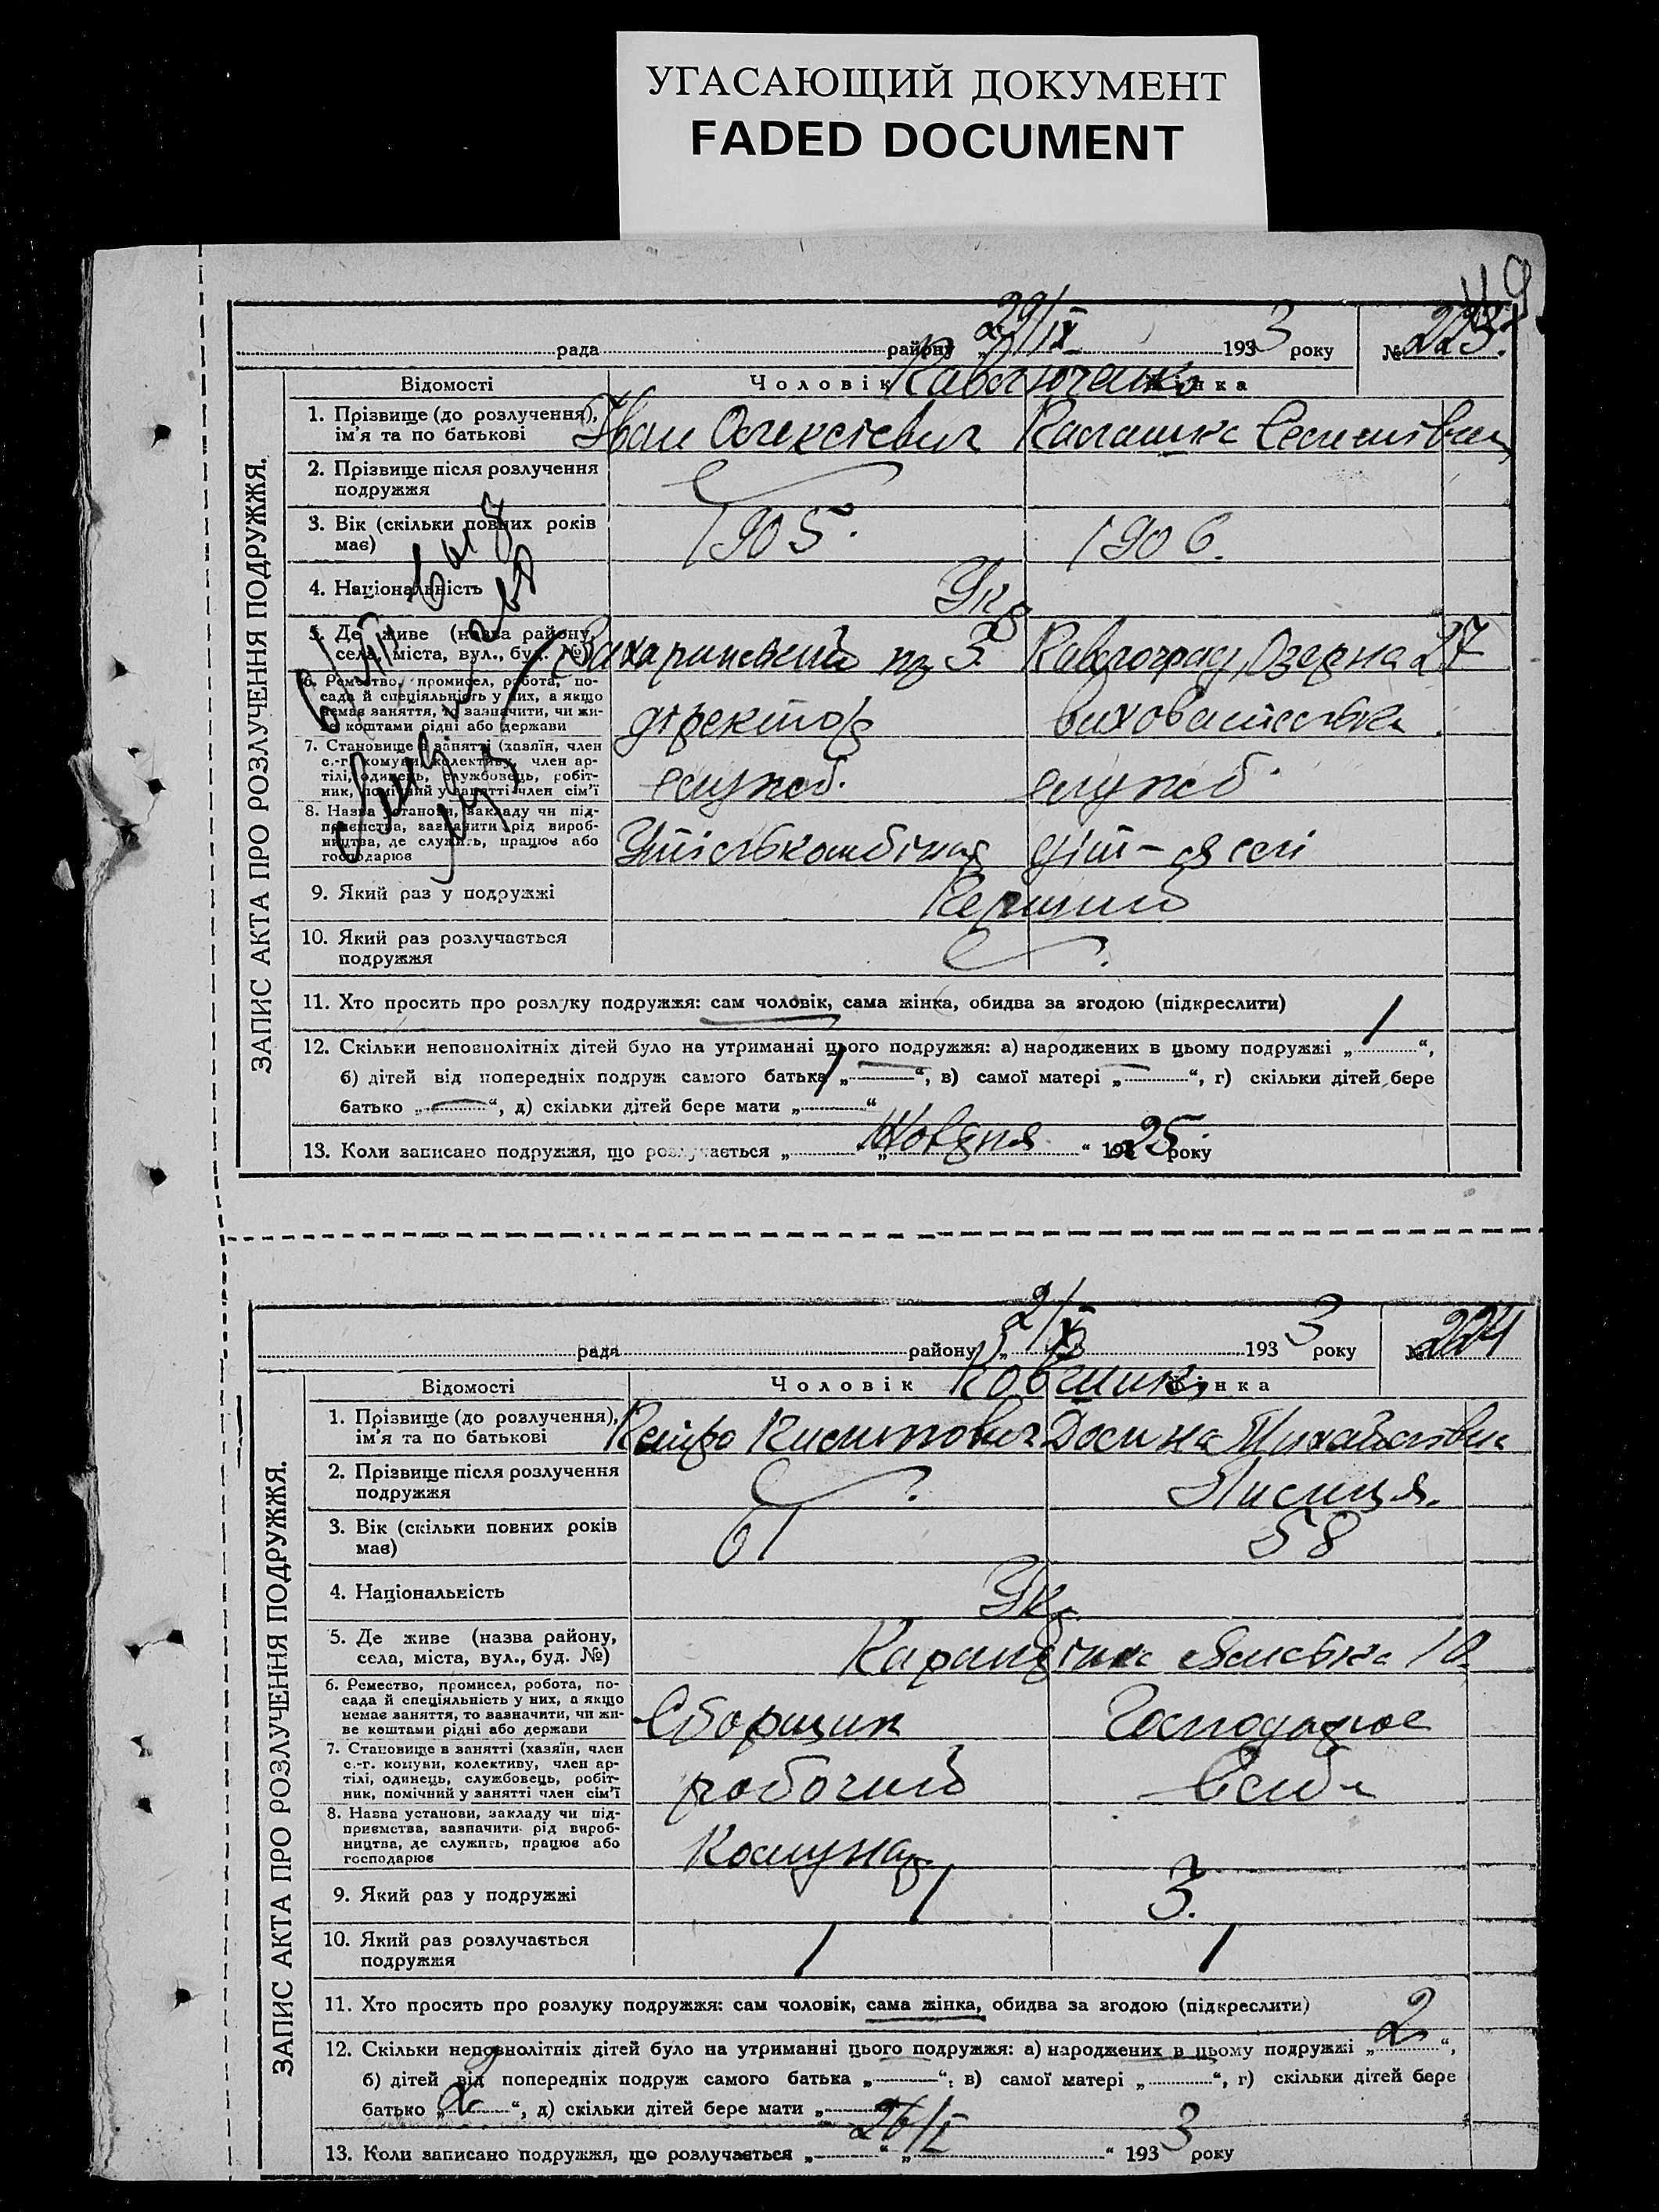 УГАСАЮЩИЙ ДОКУМЕНТ
FADED DOCUMENT
49
ЗАПИС АКТА ПРО РОЗЛУЧЕННЯ ПОДРУЖЖЯ.
рада району „29/IX 1933 року № 223.
Відомості Чоловік Жінка
1. Прізвище (до розлучення), Іван Олексієвич
ім'я та по батькові
2. Прізвище після розлучення
подружжя
3. Вік (скільки повних років 1905. 1906.
має)
4. Національність Укр
5. Де живе (назва району, пр 3. Озерна 27
села, міста, вул., буд. №)
6. Ремество, промисел, робота, по-
сада й спеціяльність у них, а якщо
немає заняття, то зазначити, чи жи-
ве коштами рідні або держави
директор вихователька
7. Становище в занятті (хазяїн, член
с.-г. комуни, колективу, член ар-
тілі, одинець, службовець, робіт-
ник, помічний у занятті член сім'ї
служб. служб.
8. Назва установи, закладу чи під-
приємства, зазначити рід вироб-
ництва, де служить, працює або
господарює
діт-яселі
9. Який раз у подружжі Перший
10. Який раз розлучається
подружжя
11. Хто просить про розлуку подружжя: сам чоловік, сама жінка, обидва за згодою (підкреслити)
12. Скільки неповнолітніх дітей було на утриманні цього подружжя: а) народжених в цьому подружжі „1“,
б) дітей від попередніх подруж самого батька „—“, в) самої матері „—“, г) скільки дітей бере
батько „—“, д) скільки дітей бере мати „1“
13. Коли записано подружжя, що розлучається „ “ „Жовтня“ 1925 року
ЗАПИС АКТА ПРО РОЗЛУЧЕННЯ ПОДРУЖЖЯ.
рада району „2/X 1933 року № 224
Відомості Чоловік Ковшик Жінка
1. Прізвище (до розлучення), Михайлівна
ім'я та по батькові
2. Прізвище після розлучення Лисиця.
подружжя
3. Вік (скільки повних років 61 58
має)
4. Національність Укр.
5. Де живе (назва району, 10
села, міста, вул., буд. №)
6. Ремество, промисел, робота, по-
сада й спеціяльність у них, а якщо
немає заняття, то зазначити, чи жи-
ве коштами рідні або держави
Сборщик Господарює
7. Становище в занятті (хазяїн, член
с.-г. комуни, колективу, член ар-
тілі, одинець, службовець, робіт-
ник, помічний у занятті член сім'ї
робочий
8. Назва установи, закладу чи під-
приємства, зазначити рід вироб-
ництва, де служить, працює або
господарює
Комунар
9. Який раз у подружжі 1 3.
10. Який раз розлучається 1 1
подружжя
11. Хто просить про розлуку подружжя: сам чоловік, сама жінка, обидва за згодою (підкреслити)
12. Скільки неповнолітніх дітей було на утриманні цього подружжя: а) народжених в цьому подружжі „2“,
б) дітей від попередніх подруж самого батька „ “, в) самої матері „ “, г) скільки дітей бере
батько „2“, д) скільки дітей бере мати „ “
13. Коли записано подружжя, що розлучається „26/I“ 1933 року